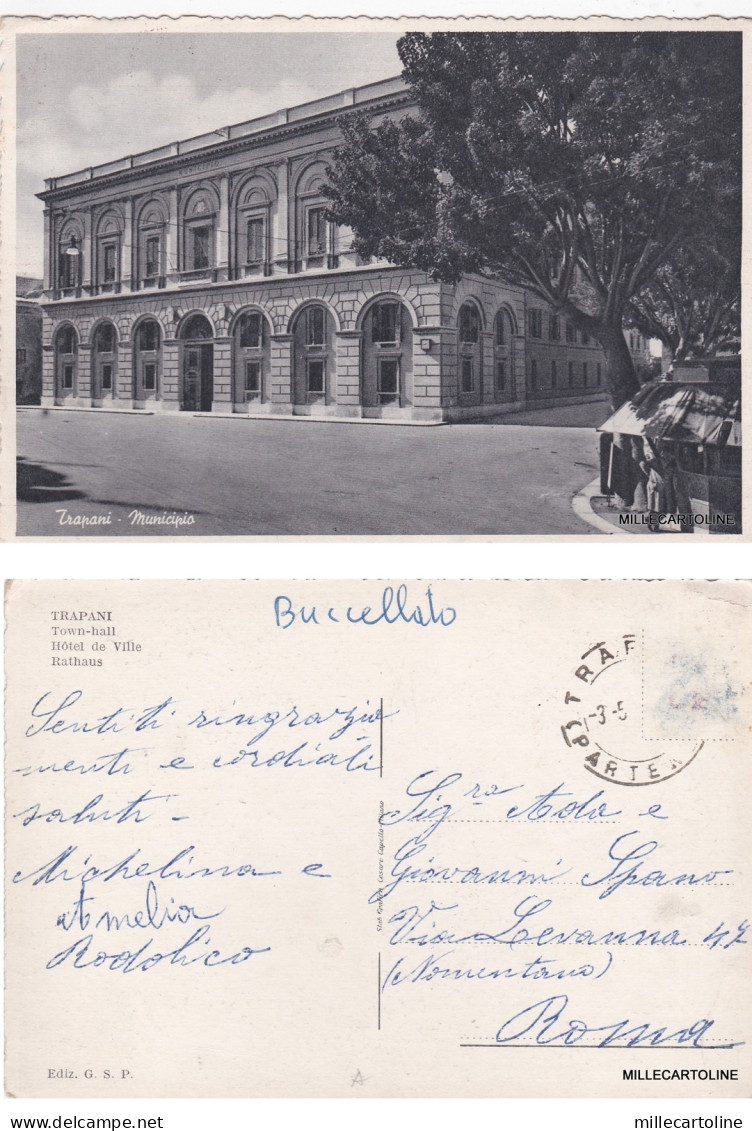 MUNICIPIO
Trapani - Municipio
MILLECARTOLINE
TRAPANI
Town-hall
Hôtel de Ville
Rathaus
Buccellato
TRAP
-3.-5
PARTEN
Sentiti ringrazia
menti e cordiali
saluti -
Michelina e
Amelia
Rodolico
Sig.ra Ada e
Giovanni Spano
Via Levanna 47
(Nomentano)
Roma
Ediz. G. S. P.
MILLECARTOLINE
millecartoline
delcampe.net